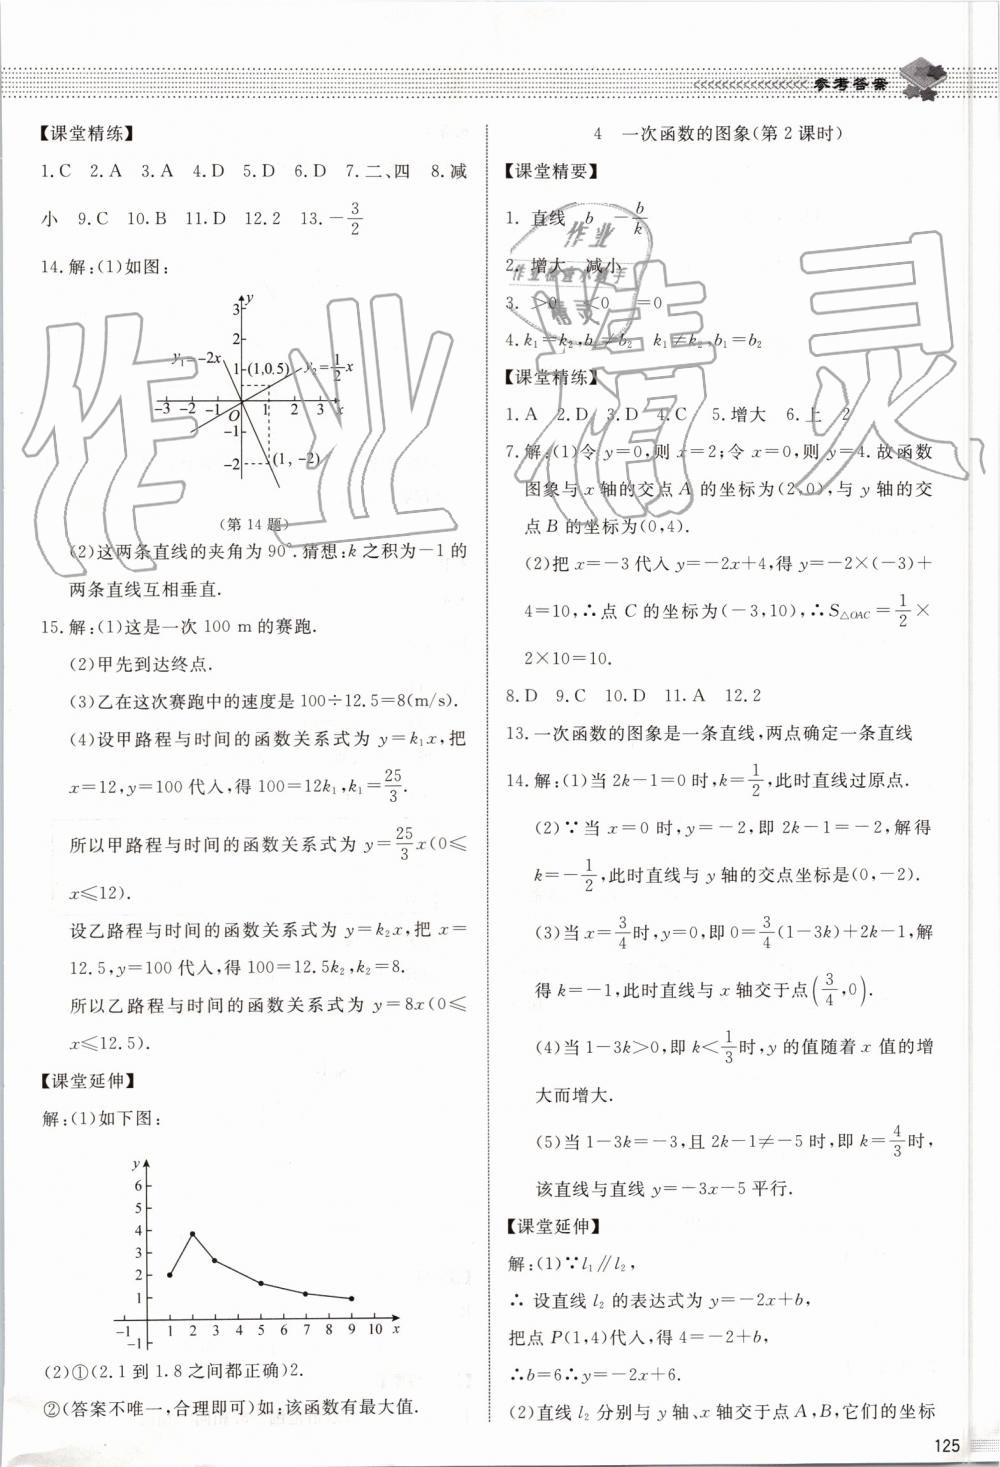 参考答案
【课堂精练】
1.C 2.A 3.A 4.D 5.D 6.D 7.二、四 8.减
小 9.C 10.B 11.D 12.2 13.-3/2
14.解:(1)如图:
y
3
2
y₁=-2x 1 (1,0.5) y₂=1/2x
-3 -2 -1 O 1 2 3 x
-1
-2 (1,-2)
(第14题)
(2)这两条直线的夹角为90°.猜想:k之积为-1的
两条直线互相垂直.
15.解:(1)这是一次100 m的赛跑.
(2)甲先到达终点.
(3)乙在这次赛跑中的速度是100÷12.5=8(m/s).
(4)设甲路程与时间的函数关系式为y=k₁x,把
x=12,y=100代入,得100=12k₁,k₁=25/3.
所以甲路程与时间的函数关系式为y=25/3x(0≤
x≤12).
设乙路程与时间的函数关系式为y=k₂x,把x=
12.5,y=100代入,得100=12.5k₂,k₂=8.
所以乙路程与时间的函数关系式为y=8x(0≤
x≤12.5).
【课堂延伸】
解:(1)如下图:
y
6
5
4
3
2
1
-1 1 2 3 4 5 6 7 8 9 10 x
-1
(2)①(2.1到1.8之间都正确)2.
②(答案不唯一,合理即可)如:该函数有最大值.
4 一次函数的图象(第2课时)
【课堂精要】
1. 直线 b -b/k
2. 增大 减小
3. >0 <0 =0
4.k₁=k₂,b₁≠b₂ k₁≠k₂,b₁=b₂
【课堂精练】
1.A 2.D 3.D 4.C 5.增大 6.上 2
7.解:(1)令y=0,则x=2;令x=0,则y=4.故函数
图象与x轴的交点A的坐标为(2,0),与y轴的交
点B的坐标为(0,4).
(2)把x=-3代入y=-2x+4,得y=-2×(-3)+
4=10,∴点C的坐标为(-3,10),∴S△OAC=1/2×
2×10=10.
8.D 9.C 10.D 11.A 12.2
13.一次函数的图象是一条直线,两点确定一条直线
14.解:(1)当2k-1=0时,k=1/2,此时直线过原点.
(2)∵当x=0时,y=-2,即2k-1=-2,解得
k=-1/2,此时直线与y轴的交点坐标是(0,-2).
(3)当x=3/4时,y=0,即0=3/4(1-3k)+2k-1,解
得k=-1,此时直线与x轴交于点(3/4,0).
(4)当1-3k>0,即k<1/3时,y的值随着x值的增
大而增大.
(5)当1-3k=-3,且2k-1≠-5时,即k=4/3时,
该直线与直线y=-3x-5平行.
【课堂延伸】
解:(1)∵l₁∥l₂,
∴设直线l₂的表达式为y=-2x+b,
把点P(1,4)代入,得4=-2+b,
∴b=6∴y=-2x+6.
(2)直线l₂分别与y轴、x轴交于点A,B,它们的坐标
125
作业精灵
作业
作业检查小助手
精灵